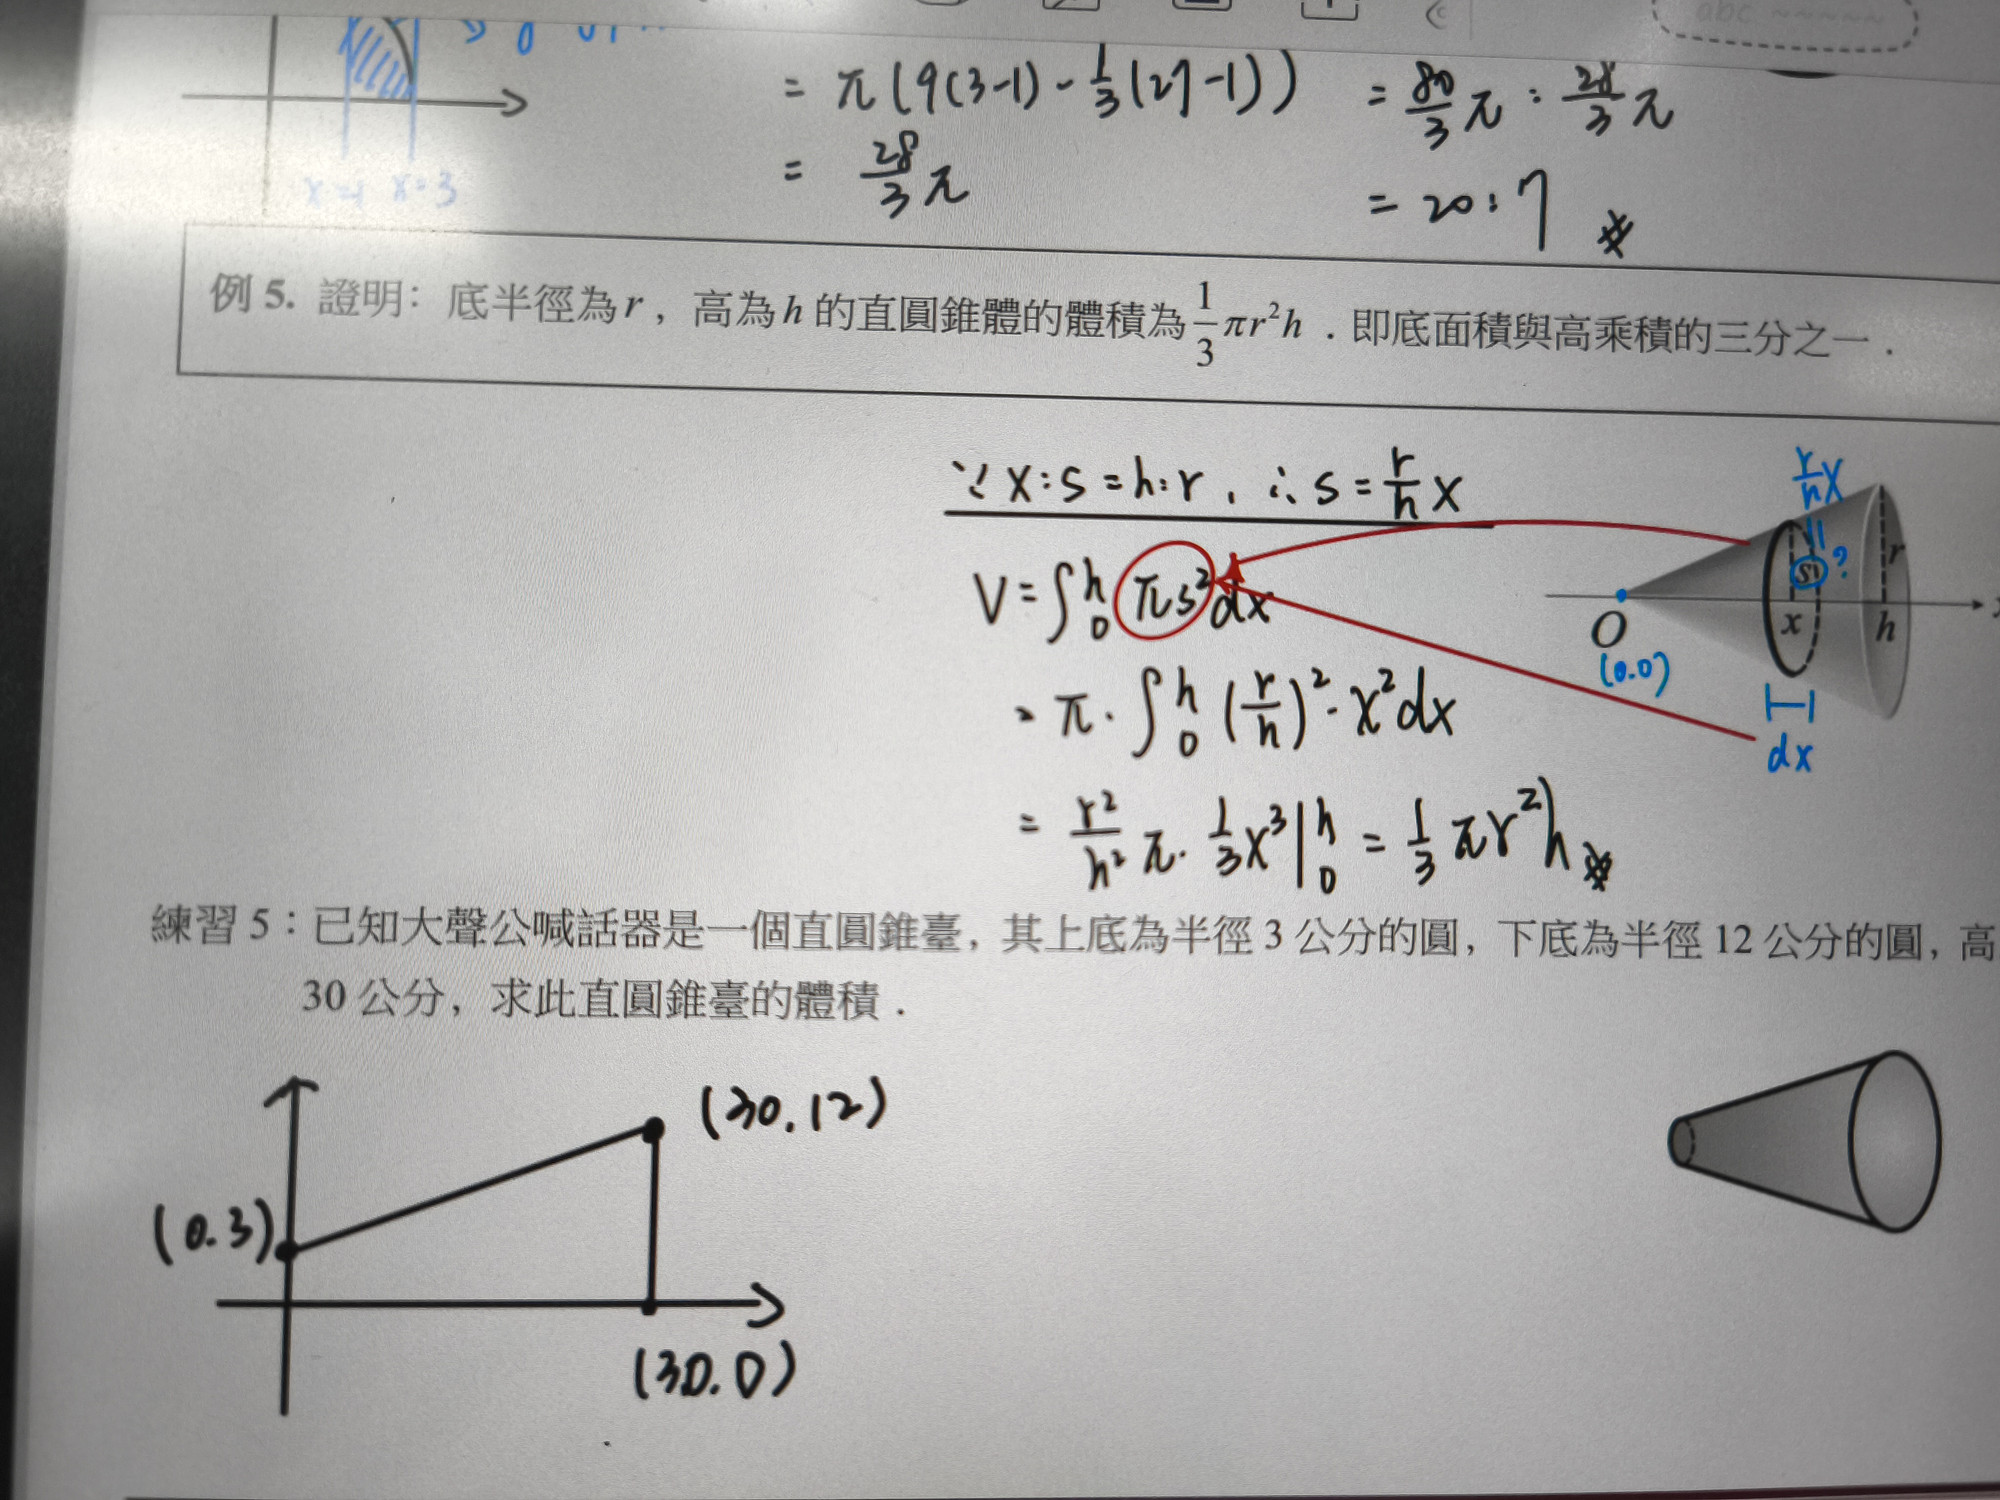 abc ~~~~~
= π(9(3-1)-1/3(27-1))
= 80/3π : 28/3π
= 28/3π
= 20:7 ※
x=1 x=3
例 5. 證明：底半徑為r，高為h的直圓錐體的體積為 1/3 πr²h．即底面積與高乘積的三分之一．
∵ x:s=h:r, ∴ s=r/h x
r/h x
V=∫₀ʰ πs²dx
= π·∫₀ʰ (r/h)²·x²dx
= r²/h² π·1/3x³|₀ʰ = 1/3πr²h ※
r
s ?
O
x
h
(0.0)
dx
練習 5：已知大聲公喊話器是一個直圓錐臺，其上底為半徑 3 公分的圓，下底為半徑 12 公分的圓，高
30 公分，求此直圓錐臺的體積．
(30.12)
(0.3)
(30.0)